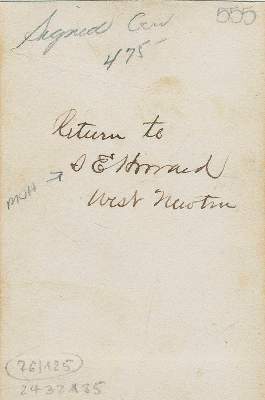 555
Signed Car
475
Return to
S E Howard
West Newton
MWH
76/125
2432 A35